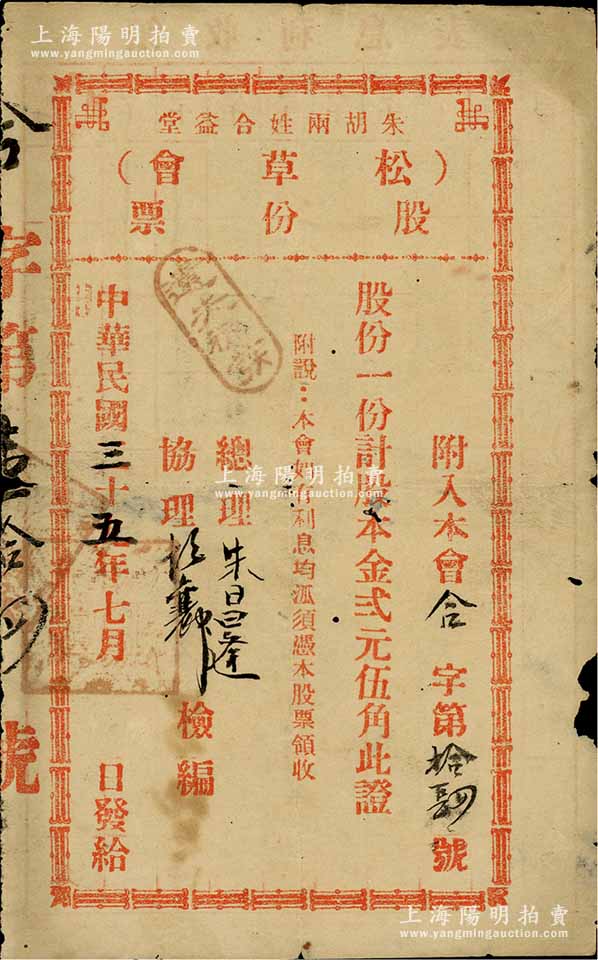 上海陽明拍賣
www.yangmingauction.com
上海陽明拍賣
www.yangmingauction.com
朱胡兩姓合益堂
（松草會）
股份票
附入本會合字第拾肆號
股份一份計股本金弍元伍角此證
附說：本會如 利息均 須憑本股票領收
總理朱昌逢
協理
檢編
中華民國三十五年七月 日發給
合字第 拾 號
上海陽明拍賣
www.yangmingauction.com
上海陽明拍賣
www.yangmingauction.com